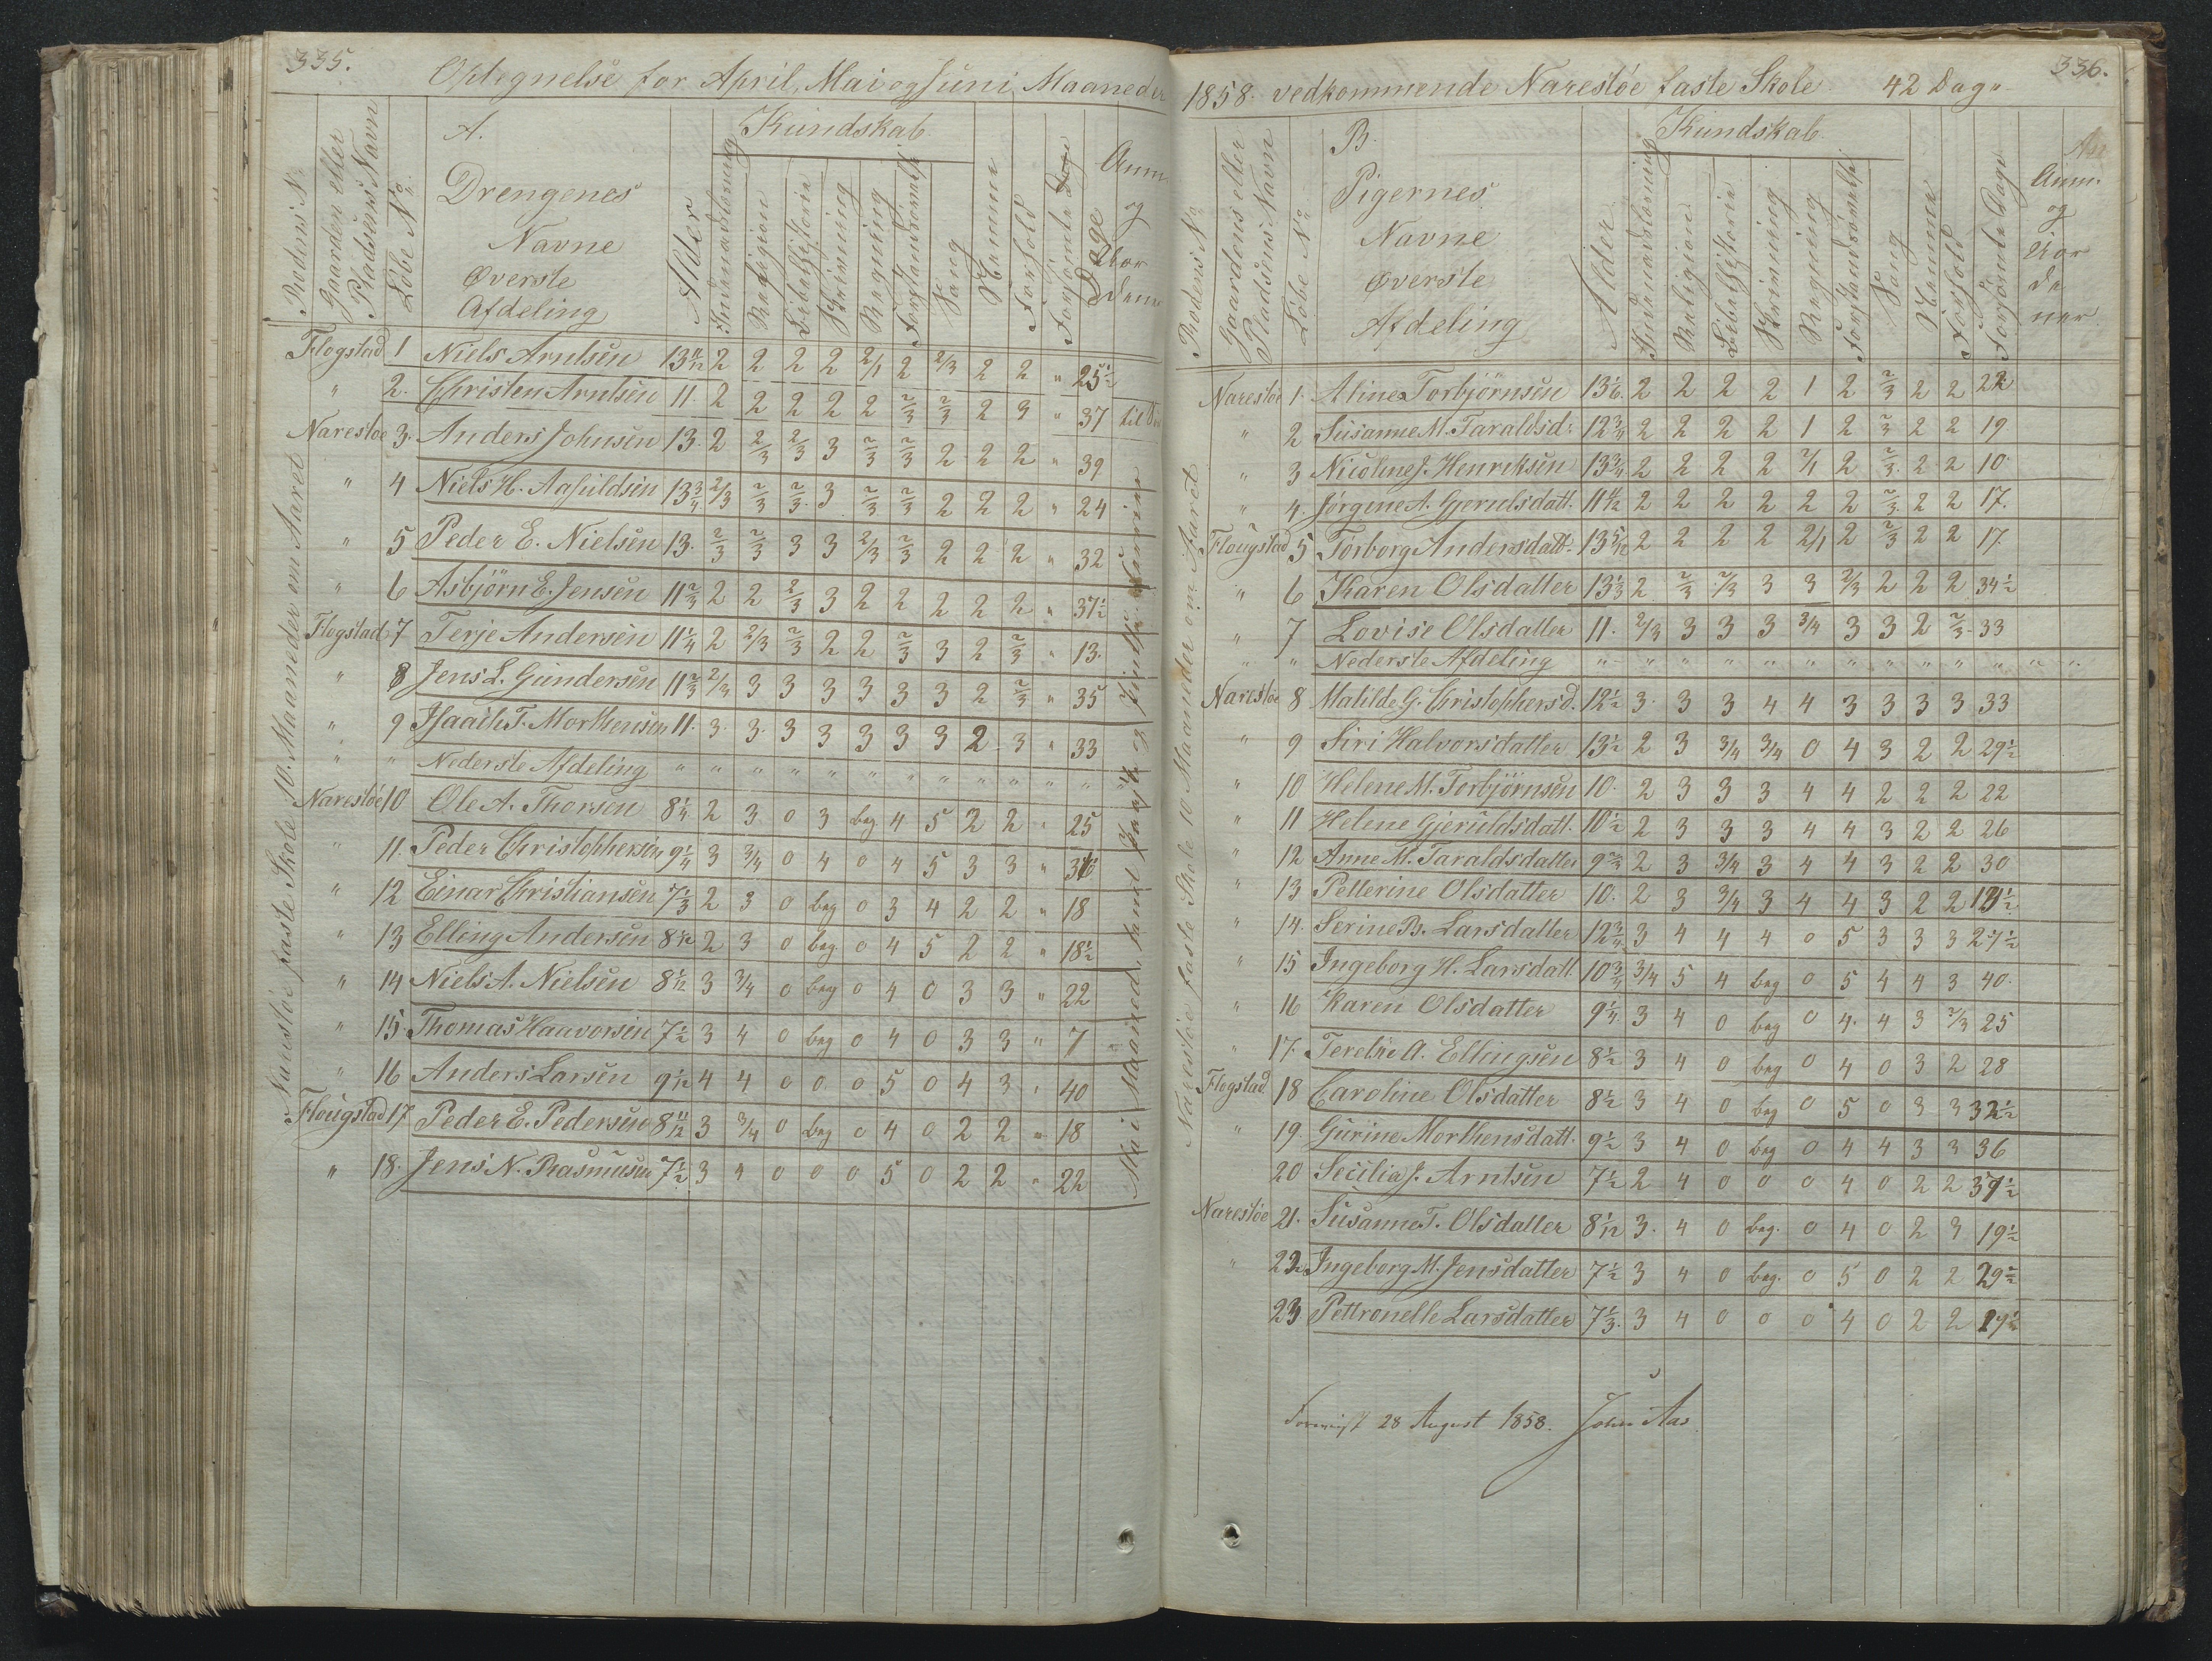 335.
Optegnelse for April, Mai og Juni Maaneder
Rodens No
Gaardens eller
Pladsens Navn
Löbe No
A.
Drengenes
Navne
Øverste
Afdeling
Alder
Kundskab
Indenadslæsning
Religion
Bibelhistorie
Skrivning
Regning
Forstandsövelse
Sang
Nemme
Forhold
Forsömte Dage
Dage
Anm.
og
Narestöe faste Skole 10 Maaneder om Aaret
Flogstad 1 Niels Arntsen 13 11/12 2 2 2 2 2/1 2 2/3 2 2 " 25½
" 2. Christen Arntsen 11. 2 2 2 2 2 2/3 2/3 2 3 " 37
Narestöe 3. Anders Johnsen 13. 2 2/3 2/3 3 2/3 2/3 2 2 2 " 39
" 4 Niels H. 13¾ 2/3 2/3 2/3 3 2/3 2/3 2 2 2 " 24
" 5 Peder E. Nielsen 13. 2/3 2/3 3 3 2/3 2/3 2 2 2 " 32
" 6 Asbjörn E. Jensen 11 2/3 2 2 2/3 3 2 2 2 2 2 " 37½
Flogstad 7 Terje Andersen 11¼ 2 2/3 2/3 2 2 2/3 3 2 2/3 " 13.
" 8 Jens L. Gundersen 11 2/3 2/3 3 3 3 3 3 3 2 2/3 " 35
" 9 Isaach T. Morthensen 11. 3. 3. 3 3 3 3 3 2 3 " 33
" " Nederste Afdeling " " " " " " " " " " " "
Narestöe 10 Ole A. Thorsen 8¼ 2 3 0 3 beg 4 5 2 2 " 25
" 11. Peder Christophersen 9¼ 3 3/4 0 4 0 4 5 3 3 "
" 12 Einar Christiansen 7⅓ 2 3 0 beg 0 3 4 2 2 " 18
" 13 Elling Andersen 8 1/12 2 3 0 beg. 0 4 5 2 2 " 18½
" 14 Niels A. Nielsen 8 1/12 3 3/4 0 beg 0 4 0 3 3 " 22
" 15. Thomas Haavorsen 7½ 3 4 0 beg 0 4 0 3 3 " 7
" 16 Anders Larsen 9 1/12 4 4 0 0 0 5 0 4 3 " 40
Flougstad 17 Peder E. Pedersen 8 11/12 3 3/4 0 beg 0 4 0 2 2 " 18
" 18. Jens N. Rasmusen 7½ 3 4 0 0 0 5 0 2 2 " 22
336.
1858. vedkommende Narestöe faste Skole 42 Dage
Rodens No
Gaardens eller
Pladsens Navn
Löbe No
B.
Pigernes
Navne
Øverste
Afdeling
Alder
Kundskab.
Indenadslæsning
Religion
Bibelhistorie
Skrivning
Regning
Forstandsövelse
Sang
Nemme
Forhold
Forsömte Dage
Anm.
og
Narestöe faste Skole 10 Maaneder om Aaret
Narestöe 1. Aline Torbjörnsen 13 1/6. 2 2 2 2 1 2 2/3 2 2 22
" 2 Susanne M. Taraldsd. 12¾ 2 2 2 2 1 2 2/3 2 2 19
" 3 Nicoline J. Henriksen 13¾ 2 2 2 2 2/1 2 2/3 2 2 10.
" 4. Jörgine A. Gjerulsdatt. 11 11/12 2 2 2 2 2 2 2/3 2 2 17.
Flougstad 5 Torborg Andersdatt. 13 5/12 2 2 2 2 2/1 2 2/3 2 2 17
" 6 Karen Olsdatter 13⅓ 2 2/3 2/3 3 3 2/3 2 2 2 34½
" 7 Lovise Olsdatter 11. 2/3 3 3 3 3/4 3 3 2 2/3 33
" " Nederste Afdeling " " " " " " " " " " " "
Narestöe 8 Matilde G. Christophersd. 12½ 3. 3 3 4 4 3 3 3 3 33
" 9 Siri Halvorsdatter 13½ 2 3 3/4 3/4 0 4 3 2 2 29½
" 10 Helene M. Torbjörnsen 10. 2 3 3 3 4 4 2 2 2 22
" 11 Helene Gjeruldsdatt. 10½ 2 3 3 3 4 4 3 2 2 26
" 12 Anne M. Taraldsdatter 9 2/3 2 3 3/4 3 4 4 3 2 2 30
" 13 Petterine Olsdatter 10. 2 3 3/4 3 4 4 3 2 2
" 14. Serine B. Larsdatter 12¾ 3 4 4 4 0 5 3 3 3 27½
" 15 Ingeborg H. Larsdatt. 10¾ 3/4 5 4 beg 0 5 4 4 3 40.
" 16 Karen Olsdatter 9¼ 3 4 0 beg 0 4. 4 3 2/3 25
" 17. Terebie A. Ellingsen 8½ 3 4 0 beg 0 4 0 3 2 28
Flogstad 18 Caroline Olsdatter 8½ 3 4 0 beg 0 5 0 3 3 32½
" 19. Gurine Morthensdatt. 9½ 3 4 0 beg 0 4 4 3 3 36
20 Secilia J. Arntsen 7½ 2 4 0 0 0 4 0 2 2 37½
Narestöe 21. Susanne T. Olsdatter 8 1/12 3. 4 0 beg. 0 4 0 2 3 19½
" 22 Ingeborg M. Jensdatter 7½ 3 4 0 beg. 0 5 0 2 2 29½
23 Pettronelle Larsdatter 7⅓. 3 4 0 0 0 4 0 2 2
28 August 1858. John Aas